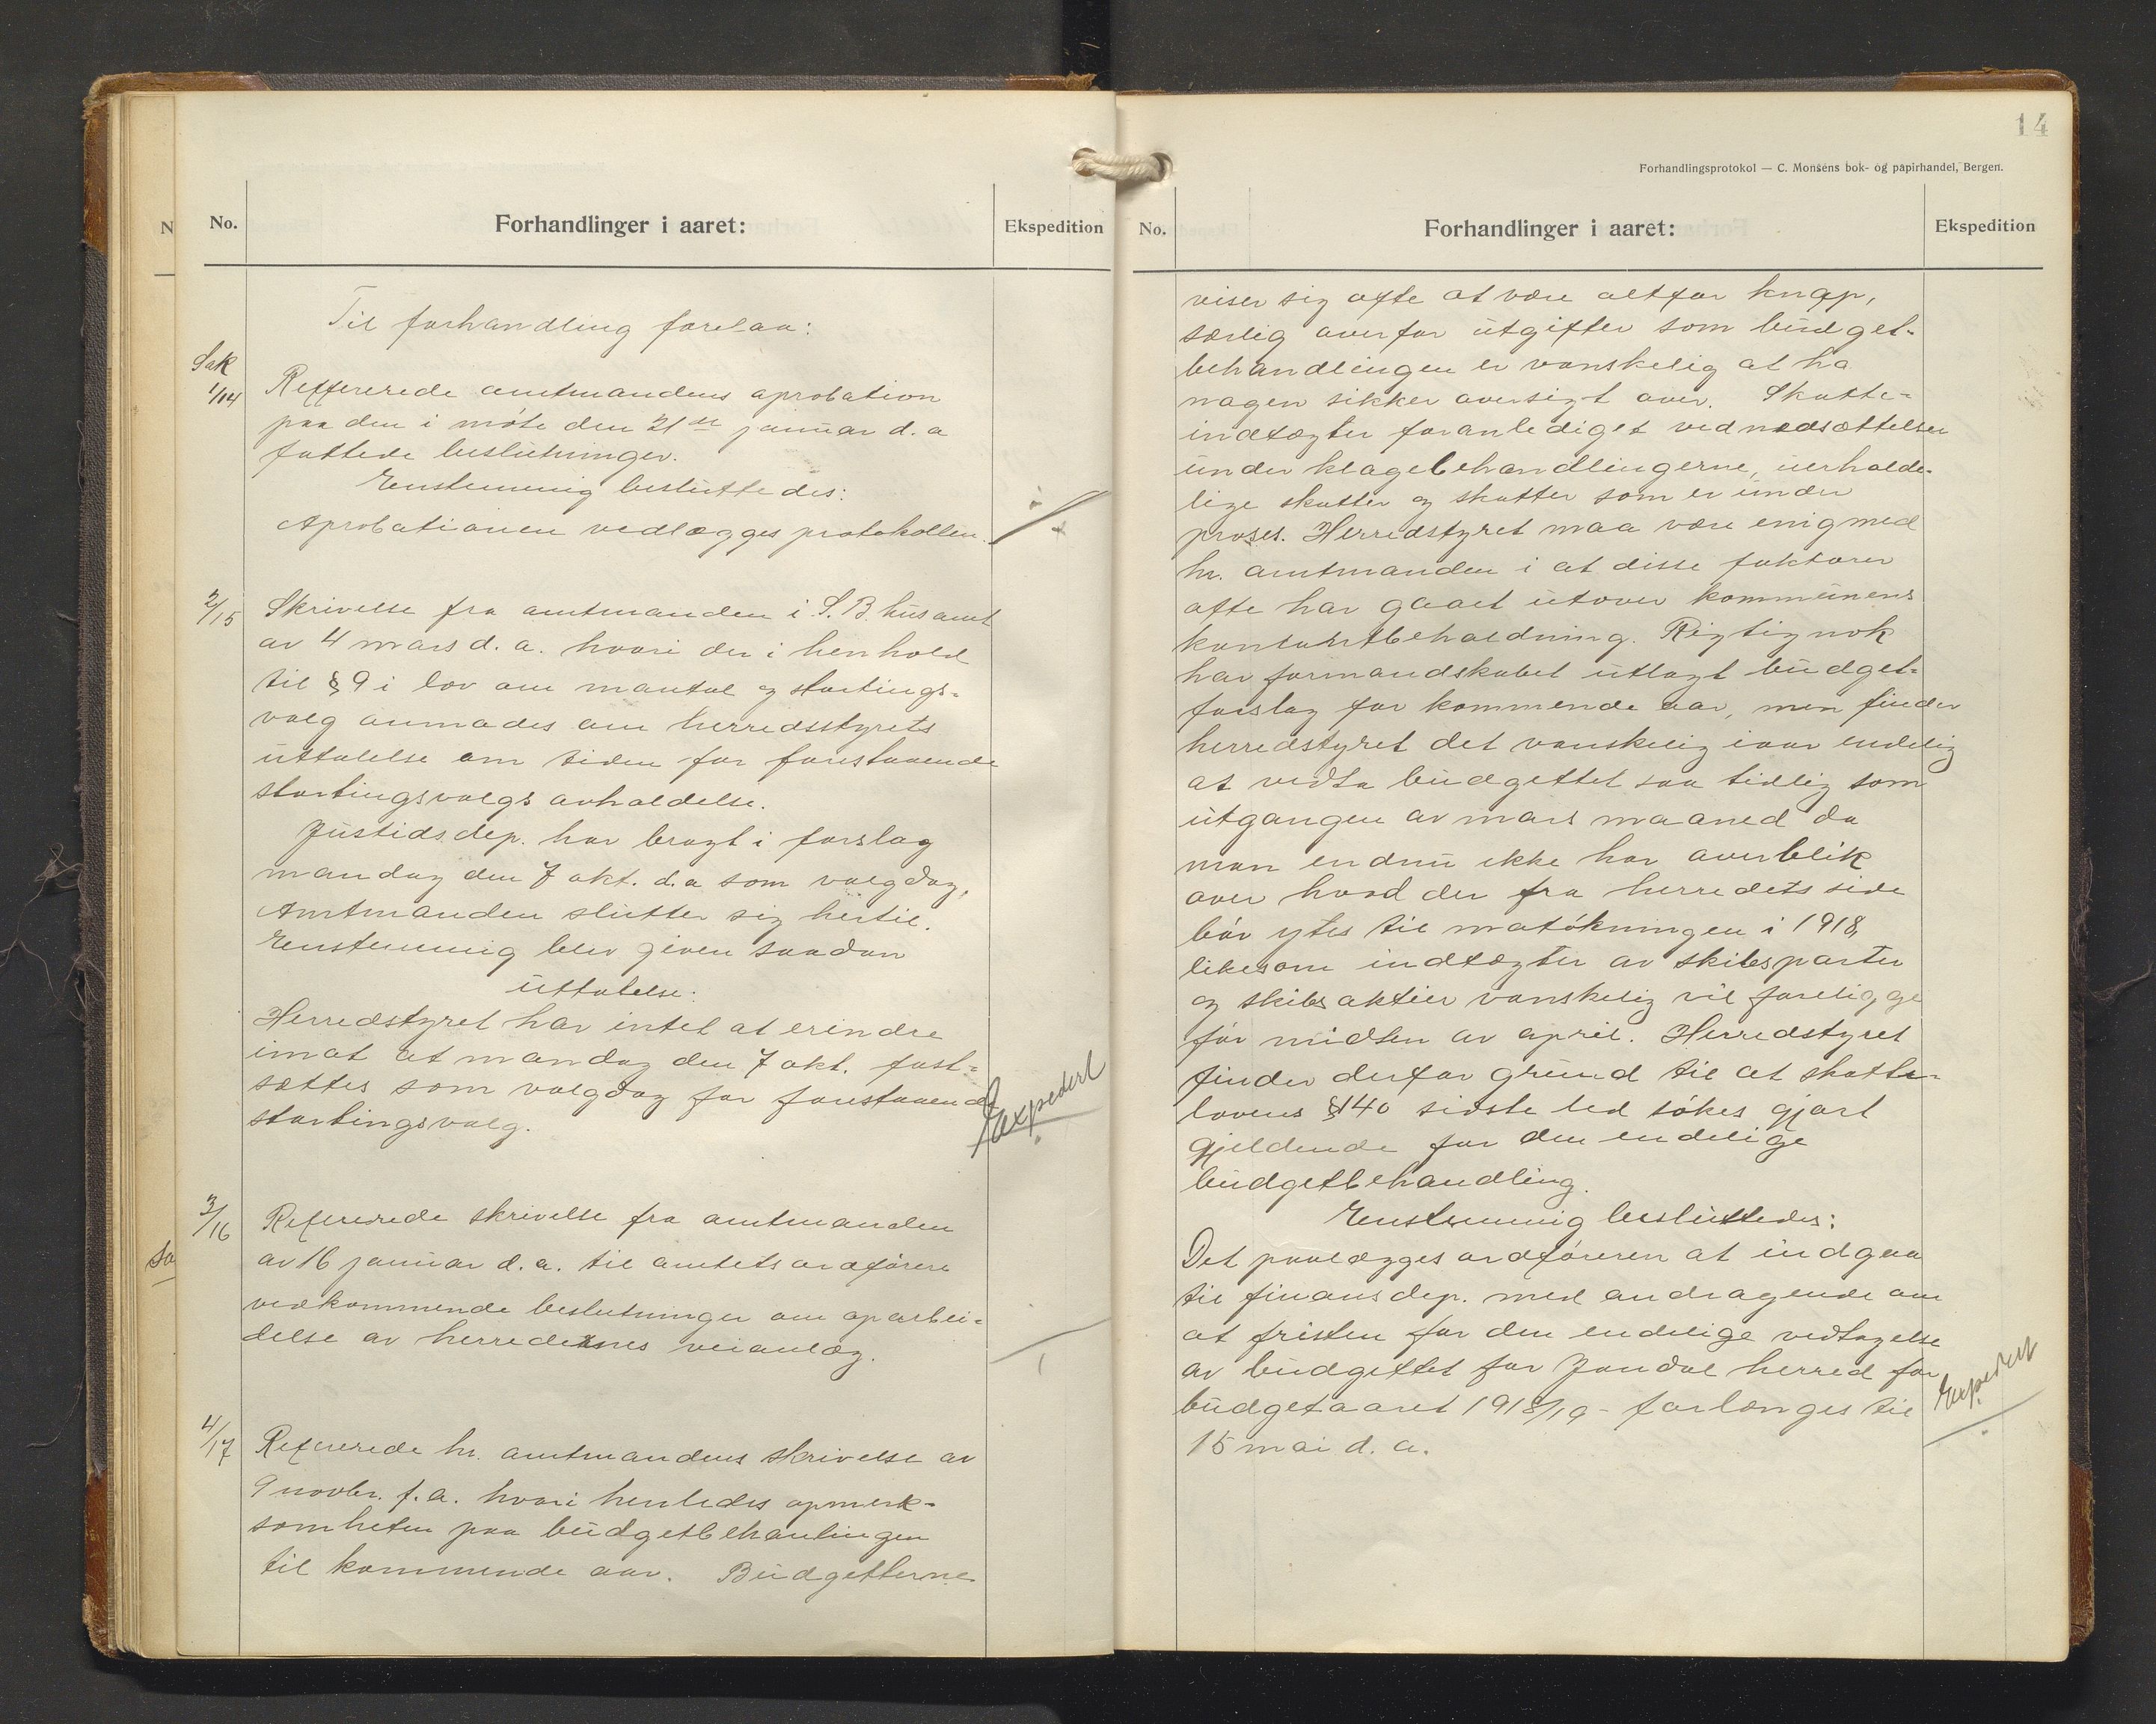 No.
Forhandlinger i aaret:
Ekspedition
Til forhandling forelaa:
Sak
1/14
Reffererede amtmandens aprobation
paa den i möte den 21de januar d. a
fattede beslutninger.
Enstemmig besluttedes:
Aprobationen vedlægges protokollen.
2/15
Skrivelse fra amtmanden i S. B. hus amt
av 4 mars d. a. hvori der i henhold
til § 9 i lov om mantal og stortings-
valg anmodes om herredsstyrets
uttalelse om tiden for forestaaende
stortingsvalgs avholdelse.
Justidsdep. har bragt i forslag
mandag den 7 okt. d. a som valgdag,
Amtmanden slutter sig hertil.
Enstemmig blev given saadan
uttalelse:
Herredstyret har intet at erindre
imot at mandag den 7 okt. fast-
sættes som valgdag for forestaaende
stortingsvalg.
Expedert
3/16
Refererede skrivelse fra amtmanden
av 16 januar d. a. til amtets ordförere
vedkommende beslutninger om oparbei-
delse av herredernes veianlæg.
4/17
Refererede hr. amtmandens skrivelse av
9 novbr. f. a. hvori henledes opmerk-
somheten paa budgetbehanlingen
til kommende aar. Budgetterne
So
N
14
Forhandlingsprotokol — C. Monsens bok- og papirhandel, Bergen.
No.
Forhandlinger i aaret:
Ekspedition
viser sig ofte at være altfor knap,
særlig overfor utgifter som budget-
behandlingen er vanskelig at ha
nogen sikker oversigt over. Skatte-
indtægter foranlediget ved nedsættelser
under klagebehandlingerne, uerholde-
lige skatter og skatter som er under
proses. Herredstyret maa være enig med
hr. amtmanden i at disse faktorer
ofte har gaaet utover kommunens
kontantbeholdning. Rigtignok
har formandskabet utlagt budget-
forslag for kommende aar, men finder
herredstyret det vanskelig iaar endelig
at vedta budgettet saa tidlig som
utgangen av mars maaned da
man endnu ikke har overblik
over hvad der fra herredets side
bör ytes til matökningen i 1918,
likesom indtægter av skibsparter
og skibsaktier vanskelig vil foreligge
för midten av april. Herredstyret
finder derfor grund til at skatte-
lovens § 140 sidste led sökes gjort
gjeldende for den endelige
budgetbehandling.
Enstemmig besluttedes:
Det paalægges ordföreren at indgaa
til finansdep. med andragende om
at fristen for den endelige vedtagelse
av budgettet for Jondal herred for
budgetaaret 1918/19 - forlænges til
15 mai d. a.
Expedert